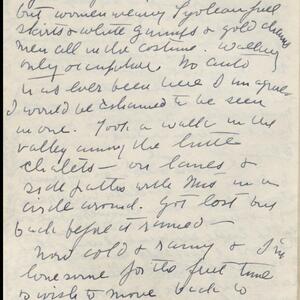 but women wearing Tyolean full
skirts & white guimps & gold chains
men all in the costume. Walking
only occupation. No auto
has ever been here I imagine
I would be ashamed to be seen
in one. Took a walk in the
valley among the little
chalets — on lanes &
side paths with Mrs in a
circle around. Got lost but
back before it rained —
Now cold & rainy & I'm
lonesome for the first time
& wish to move back to